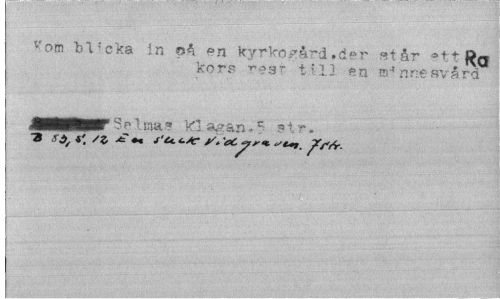 Kom blicka in på en kyrkogård.der står ett Ra
kors rest till en minnesvård
Selmas klagan.5 str.
B 53, s. 12 En suck vid graven. 7 str.